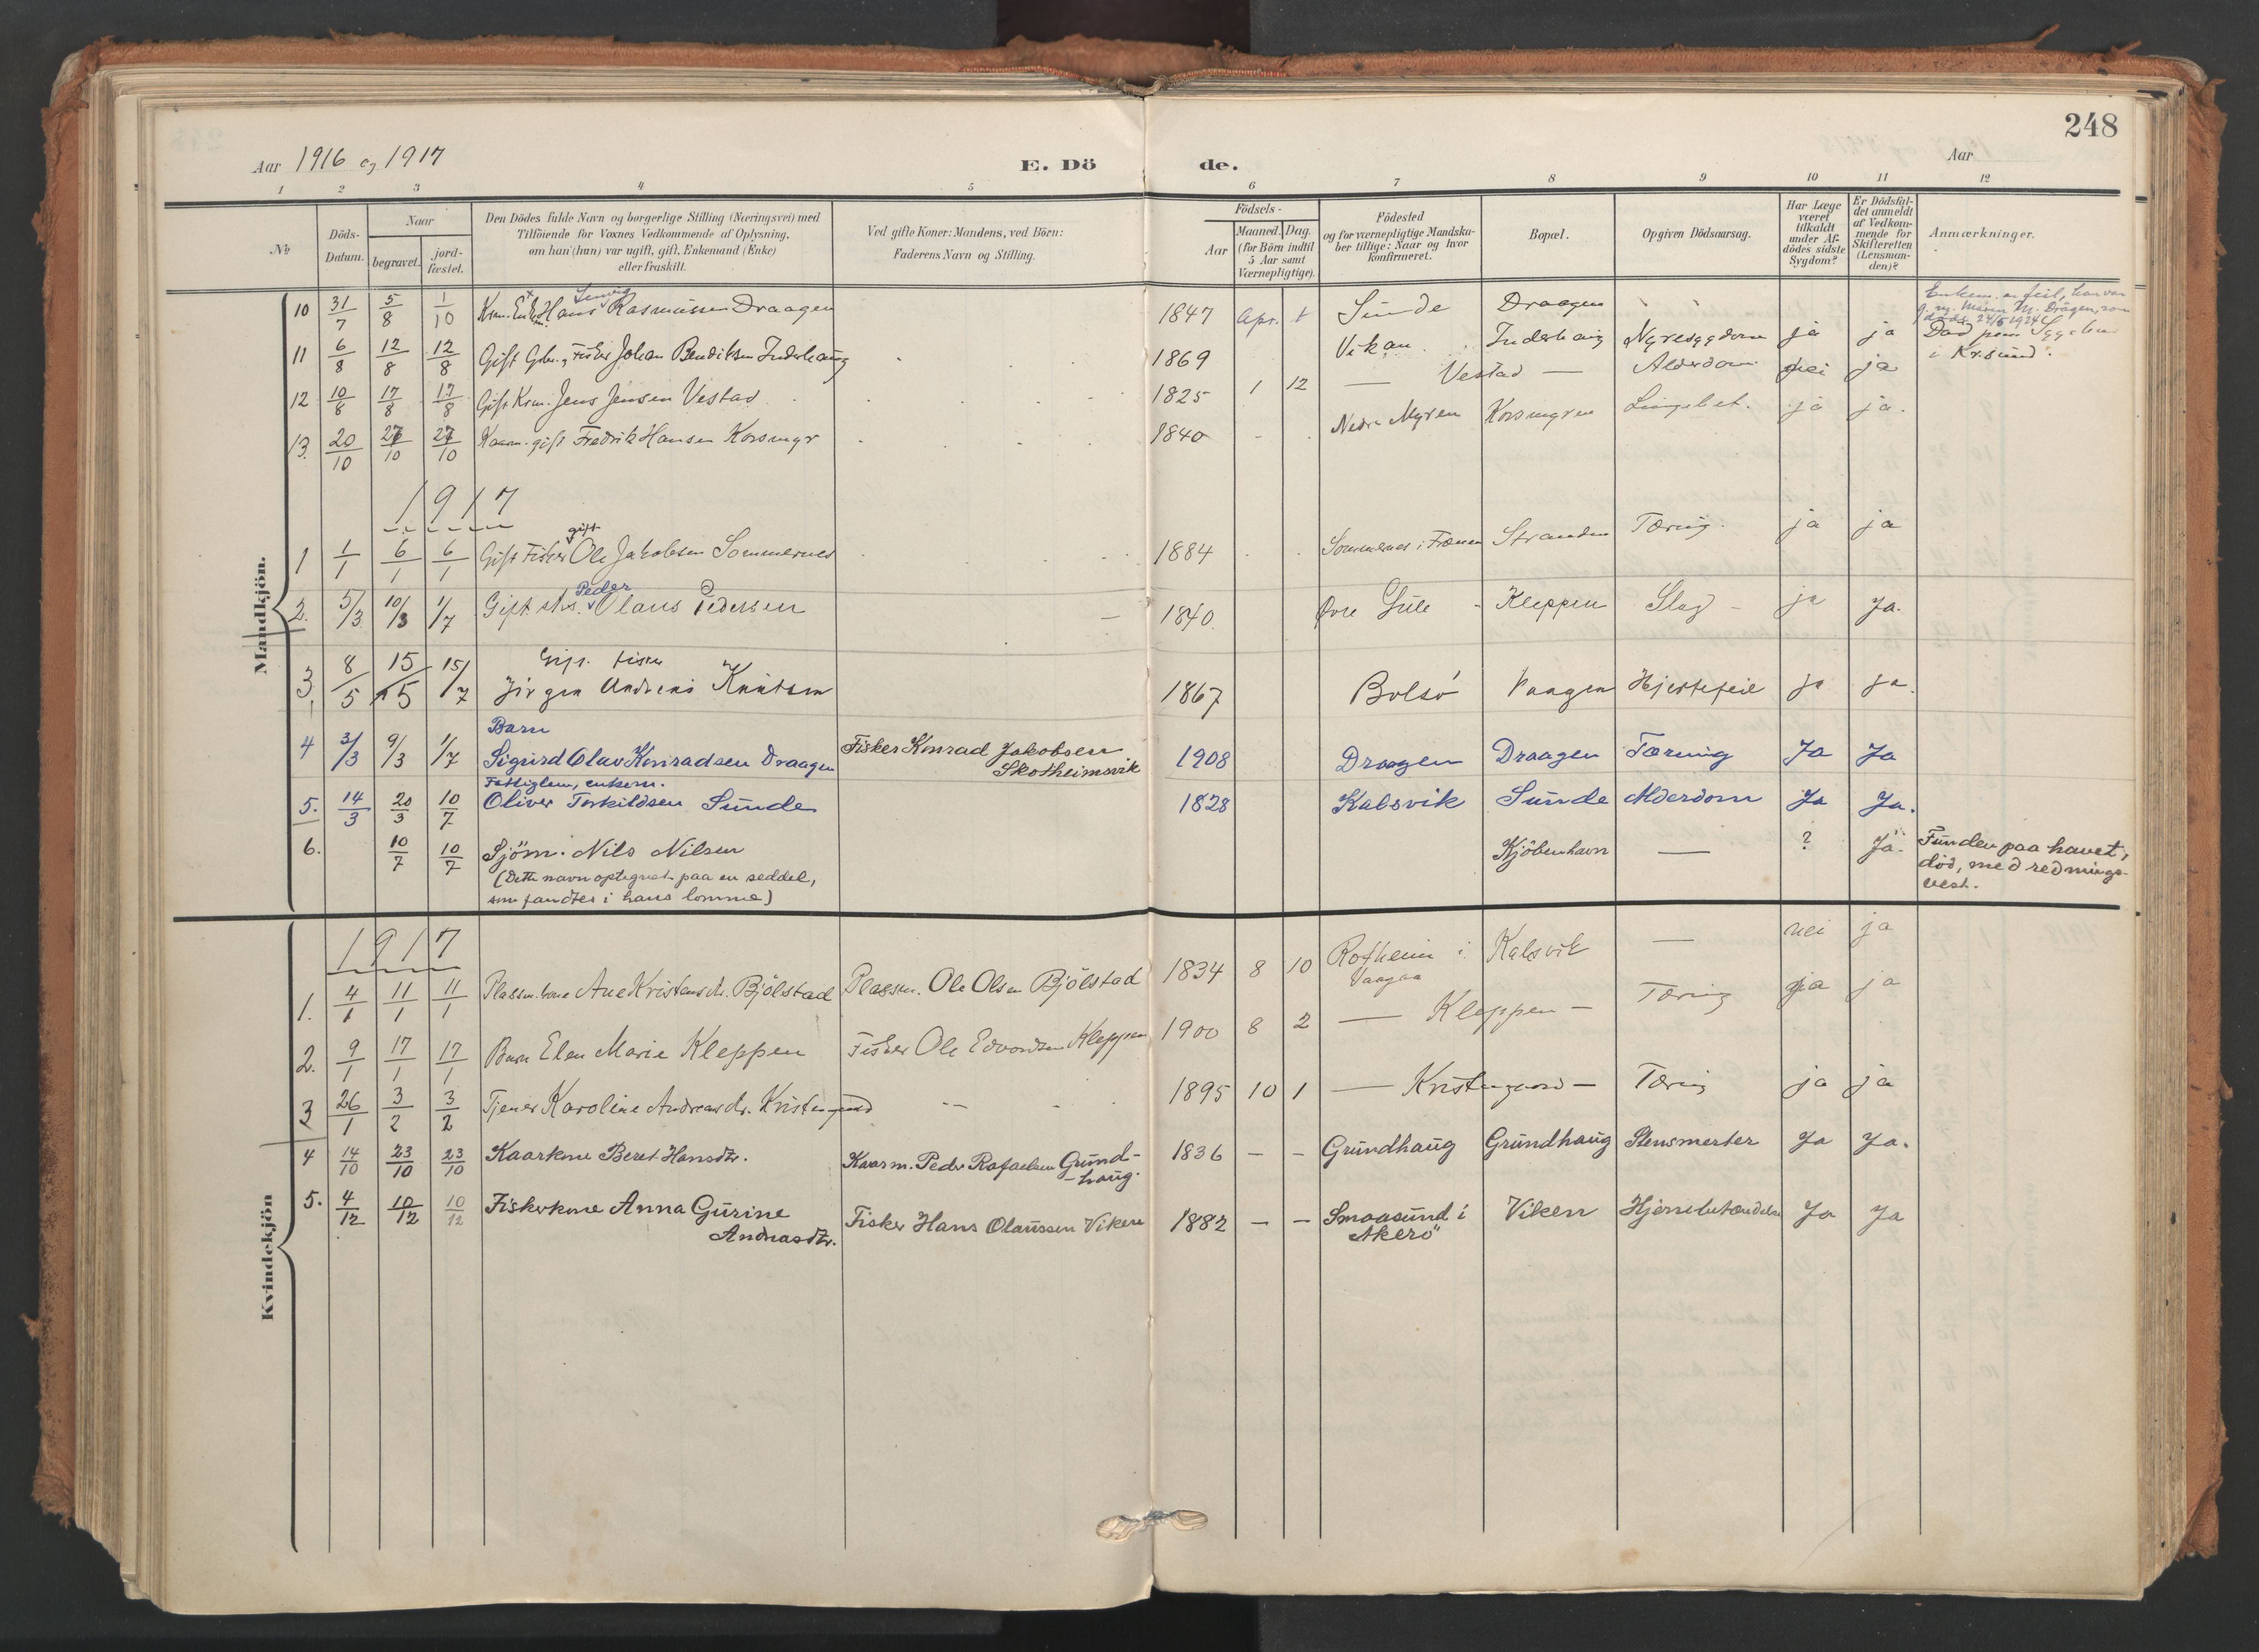 248
Aar 1916 og 1917
E. Dö de.
Aar
1 2 3 4 5 6 7 8 9 10 11 12
No
Döds-Datum.
Naar
begravet.
jord-fæstet.
Den Dödes fulde Navn og borgerlige Stilling (Næringsvei) med
Tilföiende for Voxnes Vedkommende af Oplysning,
om han (hun) var ugift, gift, Enkemand (Enke)
eller fraskilt.
Ved gifte Koner: Mandens, ved Börn:
Faderens Navn og Stilling.
Födsels-
Aar
Maaned. Dag.
(for Börn indtil
5 Aar samt
Værnepligtige).
Födested
og for værnepligtige Mandska-
ber tillige: Naar og hvor
konfirmeret.
Bopæl.
Opgiven Dödsaarsag.
Har Læge
været
tilkaldt
under Af-
dödes sidste
Sygdom?
Er Dödsfal-
det anmeldt
af Vedkom-
mende for
Skifteretten
(Lensman-
den)?
Anmærkninger.
Mandkjön.
10 31/7 5/8 1/10 Hans Rasmussen Draagen 1847 Apr. 1 Sunde Draagen
11 6/8 12/8 12/8 Gift Gbr., Fisker Johan Bendiksen Inderhaug 1869 Vikan Inderhaug Nyresygdom ja ja
i Kr.sund.
12 10/8 17/8 17/8 Gift Krm. Jens Jensen Vestad 1825 1 12 — Vestad — Alderdom nei ja
13. 20/10 27/10 27/10 Kaarm. gift Fredrik Hansen Korsmyr 1840 Nedre Myren Korsmyren Lungebet. ja ja.
1917
gift
1 1/1 6/1 6/1 Gift Fisker Ole Jakobsen Sommernes 1884 Sommernes i Fræna Stranden Tæring. ja ja
Peder
2. 5/3 10/3 1/7 Gift Olaus Pedersen 1840. Øvre Kleppen Slag ja Ja.
Gift. fisker
3. 8/5 15/5 15/7 Jørgen Andreas Knutsen 1867 Bolsö Vaagen Hjertefeil ja ja.
Barn
4 3/3 9/3 1/7 Sigurd Olav Konradsen Draagen Fisker Konrad Jakobsen Skotheimsvik 1908 Draagen Draagen Tæring Ja Ja
Fattiglem, enkem.
5. 14/3 20/3 10/7 Oliver Torkildsen Sunde 1828 Kalsvik Sunde Alderdom Ja Ja.
6. 10/7 10/7 Sjöm. Nils Nilsen Kjöbenhavn — ? Ja. Funden paa havet,
(Dette navn optegnet paa en seddel, död, med rednings-
som fandtes i hans lomme) vest.
Kvindekjön
1917
1. 4/1 11/1 11/1 Plassm. kone Ane Kristensdr. Bjölstad Plassm. Ole Olsen Bjölstad 1834 8 10 Rotheim i Vaagaa Kalsvik — nei ja
2. 9/1 17/1 17/1 Barn Elen Marie Kleppen Fisker Ole Edvardsen Kleppen 1900 8 2 — Kleppen — Tæring ja ja
3 26/1 3/2 3/2 Tjener Karoline Andreasdr. Kristengaard 1895 10 1 — Kristengaard — Tæring ja ja
4 14/10 23/10 23/10 Kaarkone Beret Hansdtr. Kaarm. Peder Rafaelsen Grund-haug. 1836 — — Grundhaug Grundhaug Stensmerter Ja Ja.
5. 4/12 10/12 10/12 Fiskerkone Anna Gurine Andreasdtr. Fisker Hans Olaussen Viken 1882 — — Smaasund i Akerö Viken Hjernebetændelse Ja Ja